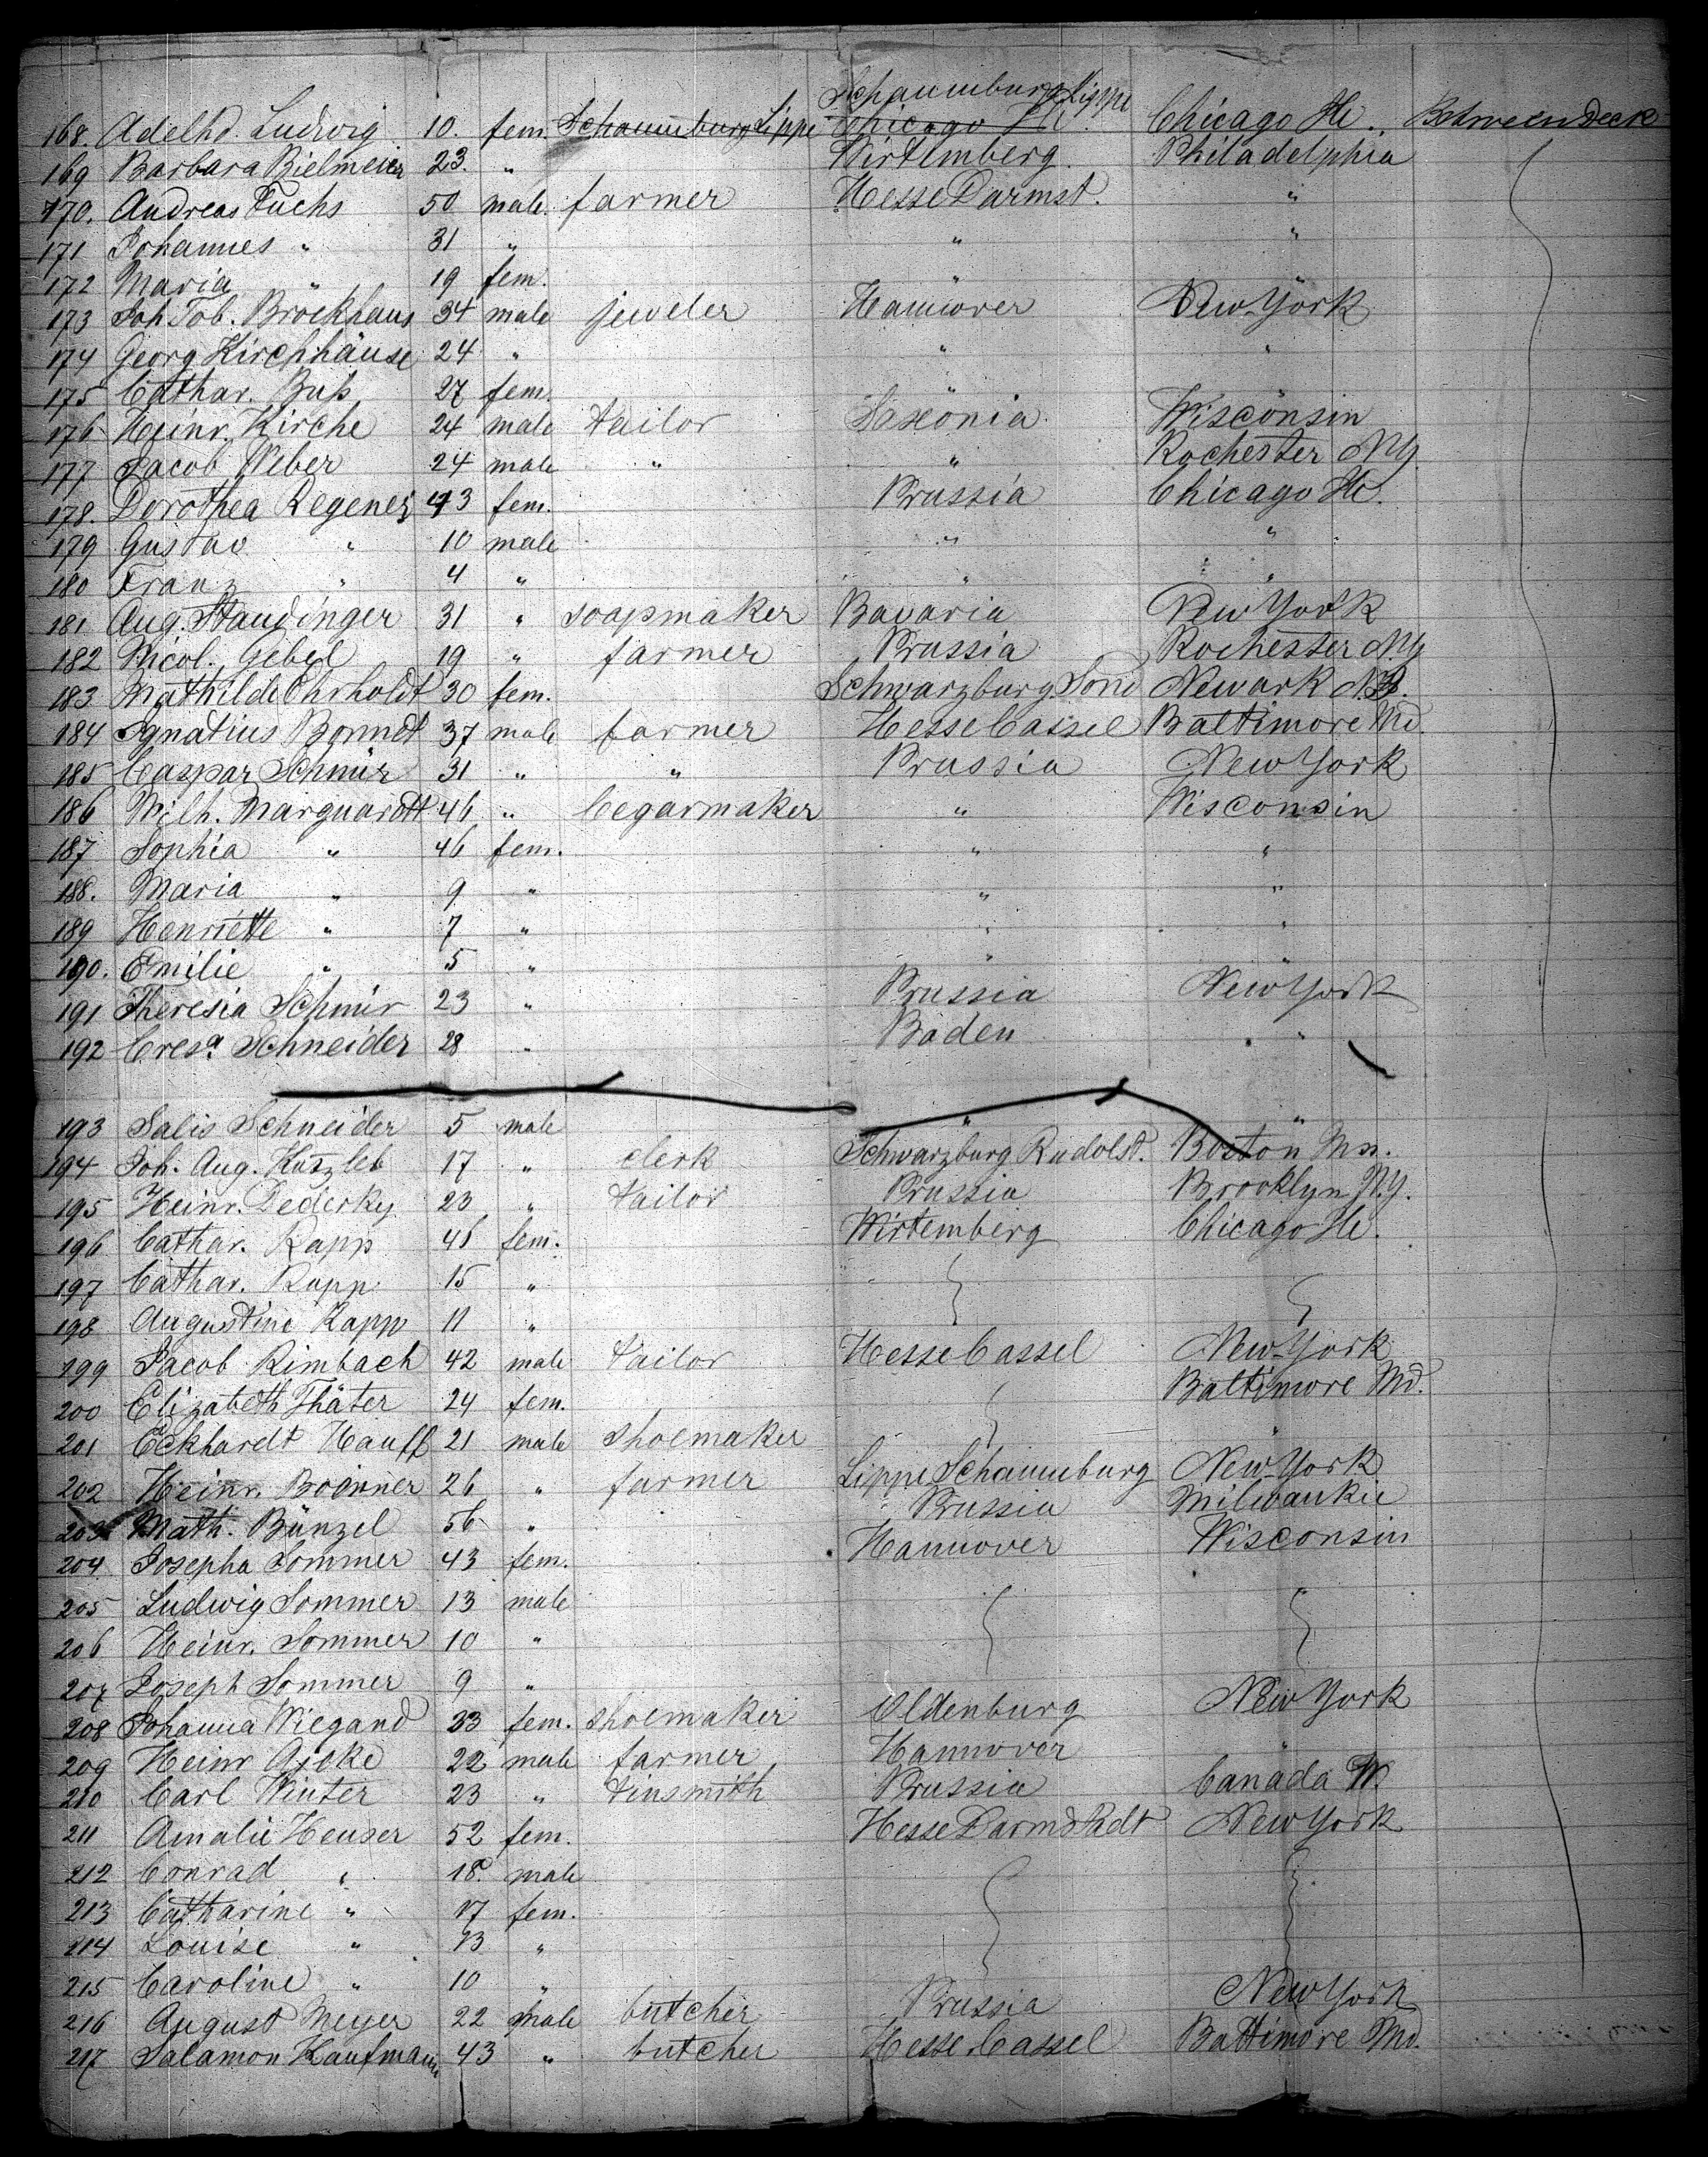 Schaumburg Lippe
168. Adelhd. Ludwig 10. fem. Schaumburg Lippe Chicago Ill. Chicago Ill. Between Deck
169 Barbara Bielmeier 23. " Wirtemberg. Philadelphia
170. Andreas Fuchs 50 male. farmer Hesse Darmst. "
171 Johannes " 31 " " "
172 Maria " 19 fem. "
173 Joh. Tob. Bröckhaus 34 male jeweler Hannover New-York
174 Georg Kirchhäuse 24 " " "
175 Cathar. Buß 27 fem.
176 Heinr. Kirche 24 male tailor Saxonia Wisconsin
177 Jacob Weber 24 male " " Rochester NY.
178. Dorothea Regener 43 fem. Prussia Chicago Ill.
179 Gustav " 10 male " "
180 Franz " 4 " " "
181 Aug. Staudinger 31 " soapmaker Bavaria New York
182 Nicol. Gebel 19 " farmer Prussia Rochester NY
183 Mathilde Ohrholdt 30 fem. Schwarzburg Sond Newark N.J.
184 Ignatius Bonndt 37 male farmer Hesse Cassel Baltimore Md.
185 Caspar Schmir 31 " " Prussia New York
186 Wilh. Marquardt 46 " Cegarmaker " Wisconsin
187 Sophia " 46 fem. " "
188. Maria " 9 " " "
189 Henriette " 7 " " "
190. Emilie " 5 " " "
191 Theresia Schmir 23 " Prussia New York
192 Cresa Schneider 28 " Baden "
193 Salis Schneider 5 male " "
194 Joh. Aug. Kuzleb 17 " clerk Schwarzburg Rudolst. Boston Mss.
195 Heinr. Dederky 23 " tailor Prussia Brooklyn N.Y.
196 Cathar. Rapp 46 fem. Wirtemberg Chicago Ill.
197 Cathar. Rapp 15 "
198 Augustine Rapp 11 "
199 Jacob Rimbach 42 male tailor Hesse Cassel New-York
200 Elizabeth Thäter 24 fem. Baltimore Md.
201 Eckhardt Hauff 21 male shoemaker "
202 Heinr. Boinner 26 " farmer Lippe Schaumburg New-York
203 Math. Bünzel 56 " Prussia Milwaukie
204 Josepha Sommer 43 fem. Hannover Wisconsin
205 Ludwig Sommer 13 male
206 Heinr. Sommer 10 "
207 Joseph Sommer 9 "
208 Johanna Wiegand 33 fem. shoemaker Oldenburg New York
209 Heinr 22 male farmer Hannover "
210 Carl Winter 23 " tinsmith Prussia Canada W
211 Amalie Heuser 52 fem. Hesse Darmstadt New York
212 Conrad " 18. male
213 Catharine " 17 fem.
214 Louise " 13 "
215 Caroline " 10 "
216 August Meyer 22 male butcher Prussia New York
217 Salamon Kaufmann 43 " butcher Hesse Cassel Baltimore Md.